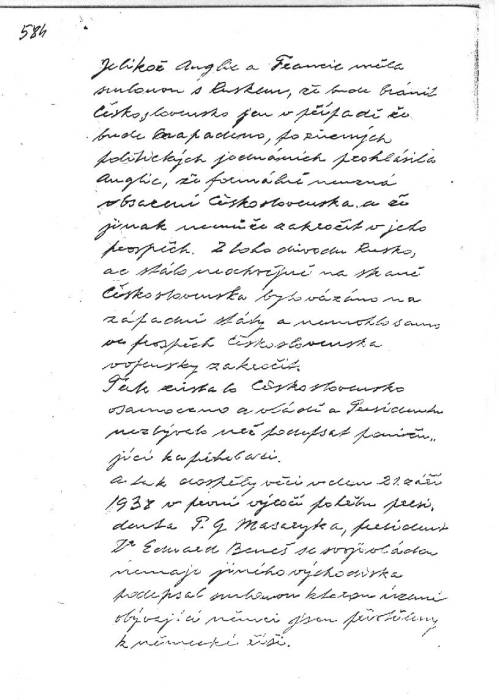 584
Jelikož Anglie a Francie měla
smlouvu s Ruskem, že bude brániti
Československo jen v případě že
bude napadeno, po různých
politických jednáních prohlásila
Anglie, že formálně neuzná
obsazení Československa a že
jinak nemůže zakročit v jeho
prospěch. Z toho důvodu Rusko,
ač stálo neochvějně na straně
Československa bylo vázáno na
západní státy a nemohlo samo
ve prospěch Československa
vojensky zakročit.
Tak zůstalo Československo
osamoceno a vládě a Presidentu
nezbývalo než podepsat poniču„
jící kapitulaci.
A tak dospěly věci v den 21. září
1938 v první výročí pohřbu presi„
denta T. G. Masaryka, president
Dr Eduard Beneš se svojí vládou
nemaje jiného východiska
podepsal smlouvu kterou území
obývající němci jsou
k německé říši.